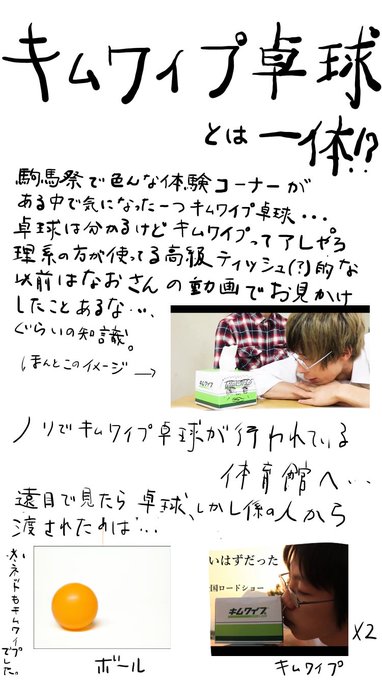 キムワイプ卓球
とは一体!?
駒場祭で色んな体験コーナーが
ある中で気になった一つキムワイプ卓球...
卓球は分かるけどキムワイプってアレやろ
理系の方が使ってる高級ティッシュ(?)的な
以前はなおさんの動画でお見かけ
したことあるな...
ぐらいの知識。
ほんとこのイメージ→
キムワイプ
ノリでキムワイプ卓球が行われている
体育館へ...
遠目で見たら卓球、しかし係の人から
渡されたのは...
※ネットもキムワイプ
でした。
ボール
いはずだった
国ロードショー
キムワイプ
X2
キムワイプ